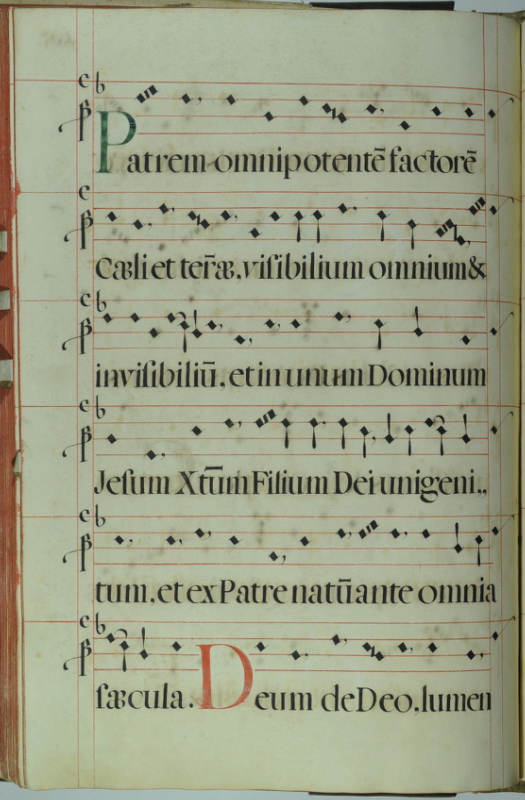 Patrem omnipotentē factorē
Cæli et terr̄æ, visibilium omnium &
invisibiliū. et in unum Dominum
Jesum Xtūm Filium Dei unigeni,,
tum. et ex Patre natū ante omnia
sæcula. Deum de Deo. lumen